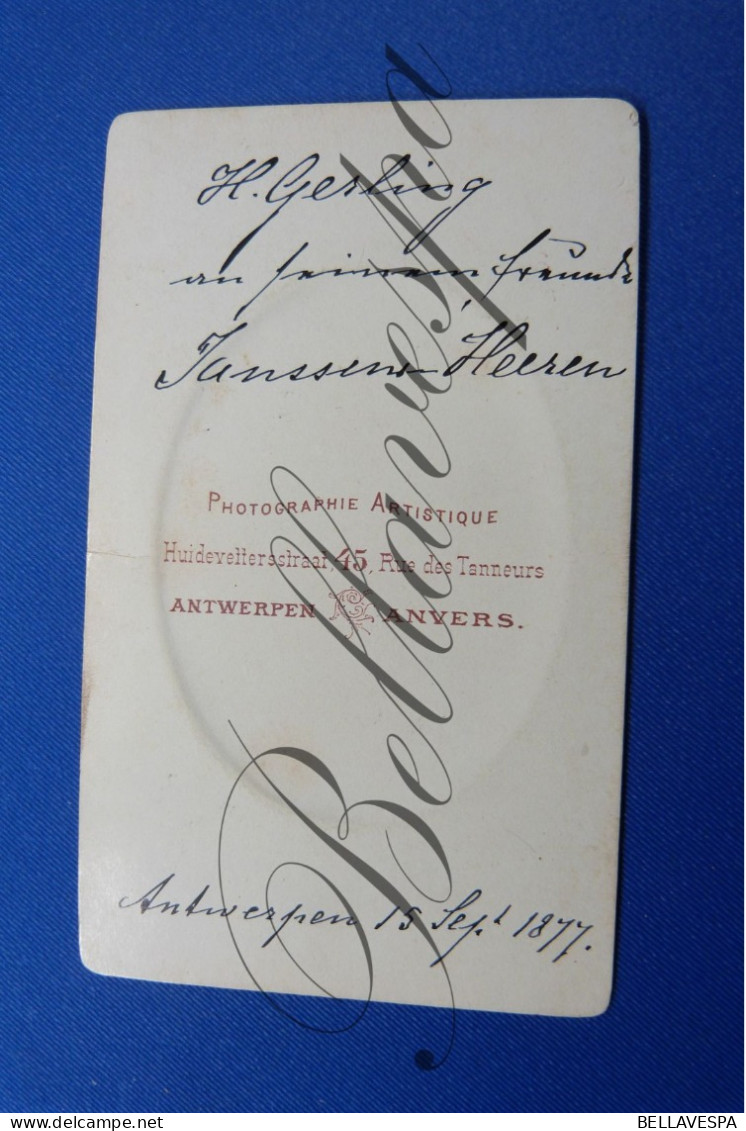 H. Gerling
an seinem Freunde
Janssen-Heeren
PHOTOGRAPHIE ARTISTIQUE
Huidevettersstraat, 45, Rue des Tanneurs
ANTWERPEN ANVERS.
Antwerpen 15 Sept 1877.
Bellavespa
BELLAVESPA